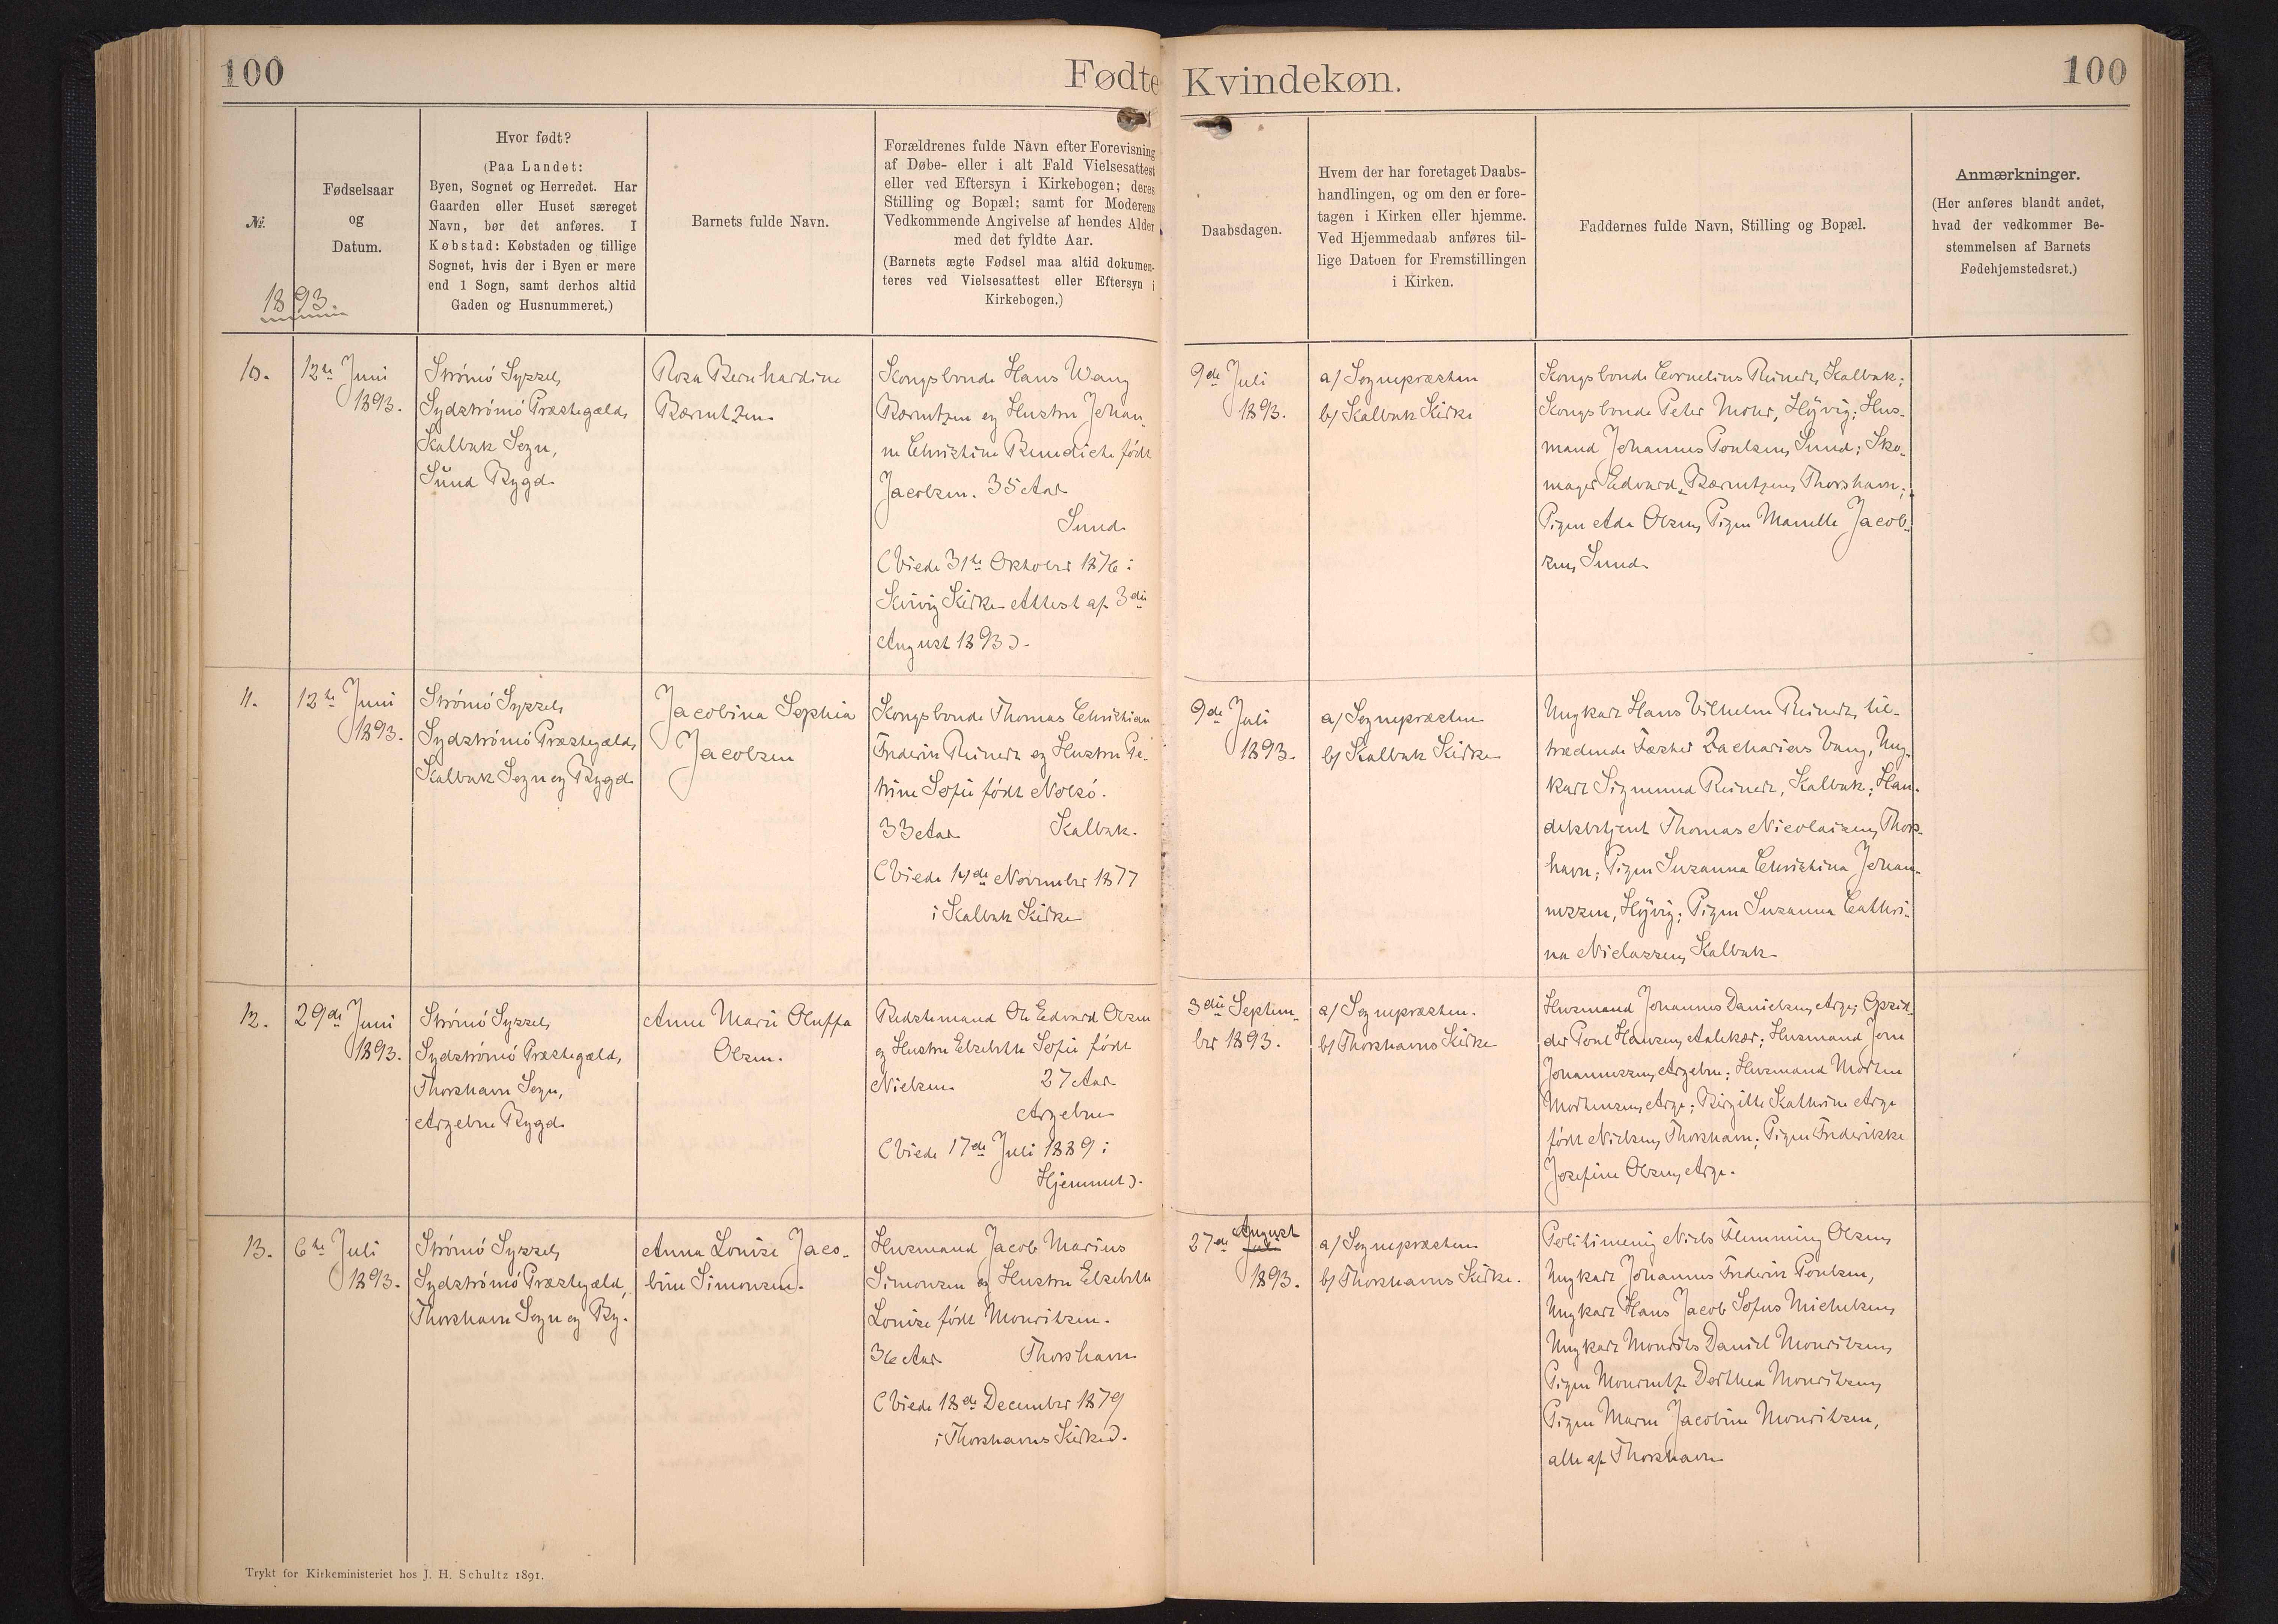 100
Fødte
Kvindekøn.
100
№.
1893.
Fødselsaar
og
Datum.
Hvor født?
(Paa Landet:
Byen, Sognet og Herredet. Har
Gaarden eller Huset særeget
Navn, bør det anføres. I
Købstad: Købstaden og tillige
Sognet, hvis der i Byen er mere
end 1 Sogn, samt derhos altid
Gaden og Husnummeret.)
Barnets fulde Navn.
Forældrenes fulde Navn efter Forevisning
af Døbe- eller i alt Fald Vielsesattest
eller ved Eftersyn i Kirkebogen; deres
Stilling og Bopæl; samt for Moderens
Vedkommende Angivelse af hendes Alder
med det fyldte Aar.
(Barnets ægte Fødsel maa altid dokumen-
teres ved Vielsesattest eller Eftersyn i
Kirkebogen.)
Daabsdagen.
Hvem der har foretaget Daabs-
handlingen, og om den er fore-
tagen i Kirken eller hjemme.
Ved Hjemmedaab anføres til-
lige Datoen for Fremstillingen
i Kirken.
Faddernes fulde Navn, Stilling og Bopæl.
Anmærkninger.
(Her anføres blandt andet,
hvad der vedkommer Be-
stemmelsen af Barnets
Fødehjemstedsret.)
10.
12te Juni
1893.
Strömö Syssel,
Sydströmö Præstegæld,
Kalbak Sogn,
Sund Bygd.
Rosa Bernhardine
Bærentzen.
Kongsbonde Hans Wang
Bærentzen og Hustru Johan-
ne Christine Benedicte födt
Jacobsen. 35 Aar
Sund.
(Viede 31te Oktober 1876 i
Kvivig Kirke Attest af 3die
August 1893).
9de Juli
1893.
a/ Sognepræsten
b/ Kalbak Kirke
Kongsbonde Cornelius Reinert, Kalbak;
Kongsbonde Peter Mohr, Höjvig; Hus-
mand Johannes Poulsen, Sund; Sko-
mager Edvard Bærentzen, Thorshavn;
Pigen Ada Olsen, Pigen Manelle Jacob-
sen, Sund.
11.
12te Juni
1893.
Strömö Syssel,
Sydströmö Præstegæld,
Kalbak Sogn og Bygd.
Jacobina Sophia
Jacobsen
Kongsbonde Thomas Christian
Frederik Reinert og Hustru Pe-
trine Sofie födt Nolsö.
33 Aar Kalbak.
(Viede 14de November 1877
i Kalbak Kirke
9de Juli
1893.
a/ Sognepræsten
b/ Kalbak Kirke
Ungkarl Hans Vilhelm Reinert, til-
trædende Fæster Zacharias Vang, Ung-
karl Sigmund Reinert, Kalbak; Han-
delsbetjent Thomas Nicolaisen, Thors-
havn; Pigen Susanna Christina Johan-
nessen, Höjvig; Pigen Susanna Cathri-
na Niclassen, Kalbak.
12.
29de Juni
1893.
Strömö Syssel,
Sydströmö Præstegæld,
Thorshavn Sogn,
Argebro Bygd.
Anne Marie Oluffa
Olsen.
Bedstemand Ole Edvard Olsen
og Hustru Elsebeth Sofie födt
Nielsen. 27 Aar
Argebro
(Viede 17de Juli 1889 i
Hjemmet).
3die Septem-
ber 1893.
a/ Sognepræsten.
b/ Thorshavns Kirke
Husmand Johannes Danielsen, Arge; Opsid-
der Poul Hansen, Aalekær; Husmand Jone
Johannessen, Argebro; Husmand Morten
Mortensen, Arge; Birgitte Kathrine Arge
födt Nielsen, Thorshavn; Pigen Frederikke
Josefine Olsen, Arge.
13.
6te Juli
1893.
Strömö Syssel,
Sydströmö Præstegæld,
Thorshavn Sogn og By.
Anna Louise Jaco-
bine Simonsen.
Husmand Jacob Marius
Simonsen og Hustru Elsebeth
Louise födt Mouritsen.
36 Aar Thorshavn
(Viede 18de December 1879
i Thorshavns Kirke).
August
27de Juli
1893.
a/ Sognepræsten
b/ Thorshavns Kirke.
Politimenig Niels Flemming Olsen,
Ungkarl Johannes Frederik Poulsen,
Ungkarl Hans Jacob Sofus Michelsen,
Ungkarl Mourits Daniel Mouritsen,
Pigen Dorthea Mouritsen,
Pigen Maren Jacobine Mouritsen,
alle af Thorshavn
Trykt for Kirkeministeriet hos J. H. Schultz 1891.